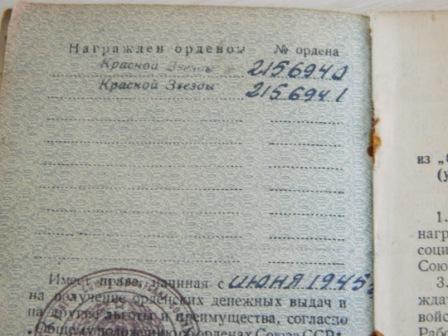 Награжден орденом № ордена
Красной Звезды 2156940
Красной Звезды 2156941
Имеет право, начиная с июня 1945
на получение орденских денежных выдач и
на другие льготы и преимущества, согласно
„Общему положению об орденах Союза ССР“
из „
(у
1.
нагр
соци
Сою
3.
жда
войс
Раб